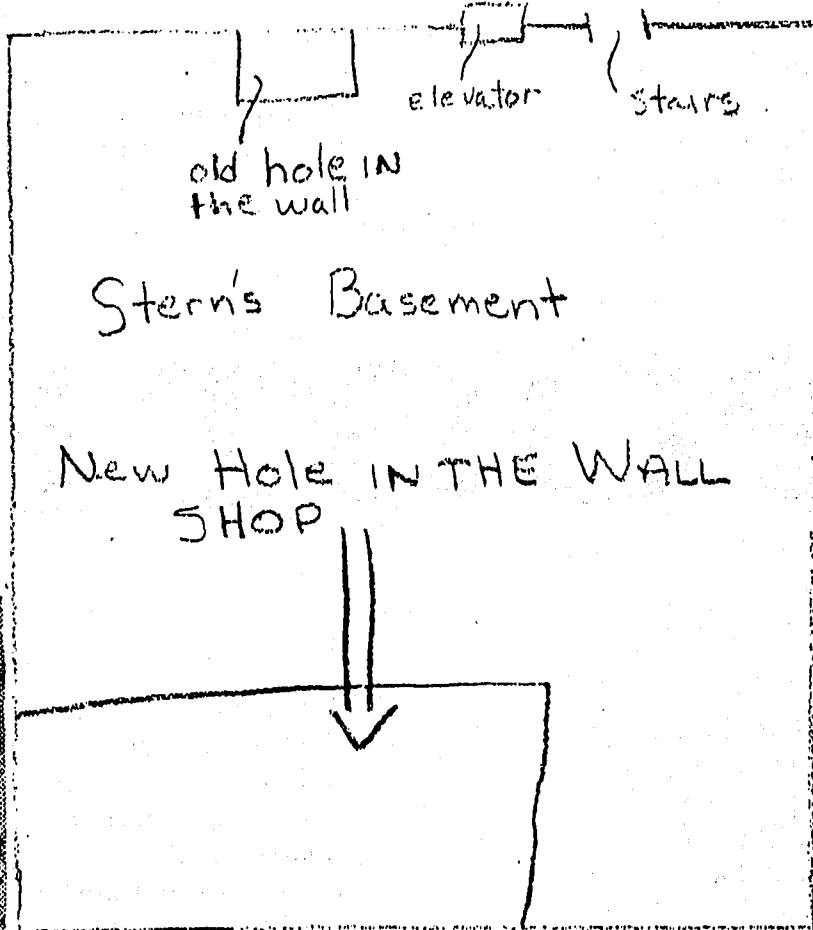 elevator
stairs
old hole IN
the wall
Stern's Basement
New Hole IN THE WALL
SHOP